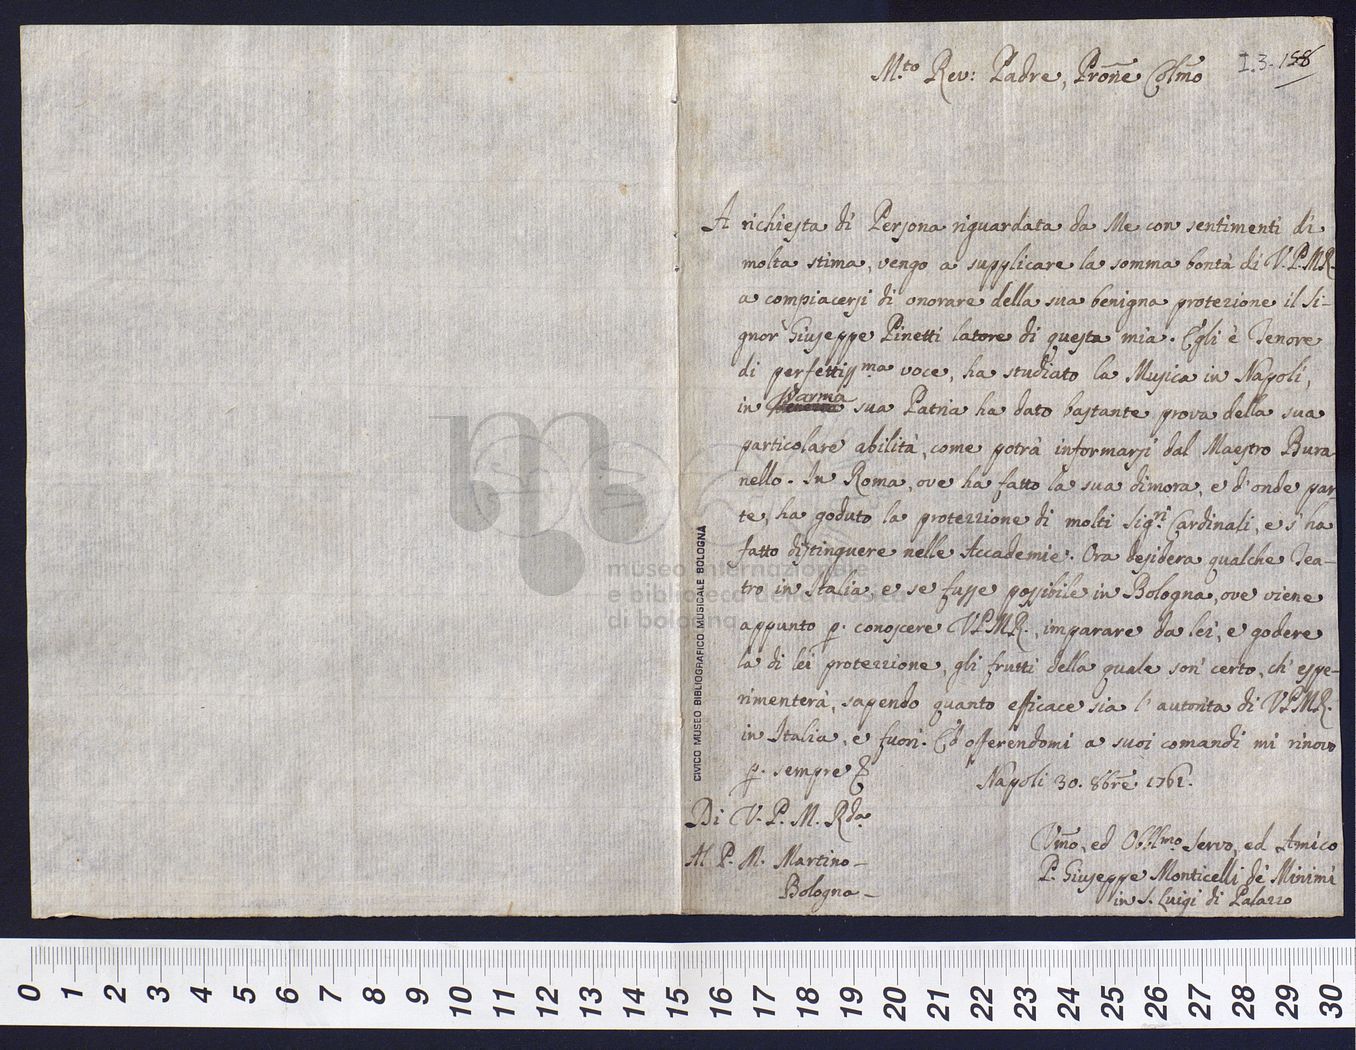 I.3.158
M.to Rev: Padre, Prone Colmo
A richiesta di Persona riguardata da Me con sentimenti di
molta stima, vengo a supplicare la somma bontà di V.P.M.R.
a compiacersi di onorare della sua benigna protezione il Si-
gnor Giuseppe Pinetti latore di questa mia. Egli è Tenore
di perfettissma voce, ha studiato la Musica in Napoli,
in Parma sua Patria ha dato bastante prova della sua
particolare abilità, come potrà informarsi dal Maestro Bura
nello. In Roma, ove ha fatto la sua dimora, e d'onde par
te, ha goduto la protezzione di molti Sig.ri Cardinali, e s'ha
fatto distinguere nelle Accademie. Ora desidera qualche Tea-
tro in Italia, e se fusse possibile in Bologna, ove viene
appunto p. conoscere V.P.M.R., imparare da lei, e godere
la di lei protezzione, gli frutti della quale son certo, ch'espe-
rimenterà, sapendo quanto efficace sia l'autorità di V.P.M.R.
in Italia, e fuori. Ed offerendomi a suoi comandi mi rinovo
p. sempre
Napoli 30. 8bre 1761.
Di V. P. M. Rda
Al P. M. Martino
Bologna
Umo, ed Obblmo Servo, ed Amico
P. Giuseppe Monticelli de' Minimi
in S. Luigi di Palazzo
CIVICO MUSEO BIBLIOGRAFICO MUSICALE BOLOGNA
museo internazionale
e biblioteca della musica
di bologna
0 1 2 3 4 5 6 7 8 9 10 11 12 13 14 15 16 17 18 19 20 21 22 23 24 25 26 27 28 29 30